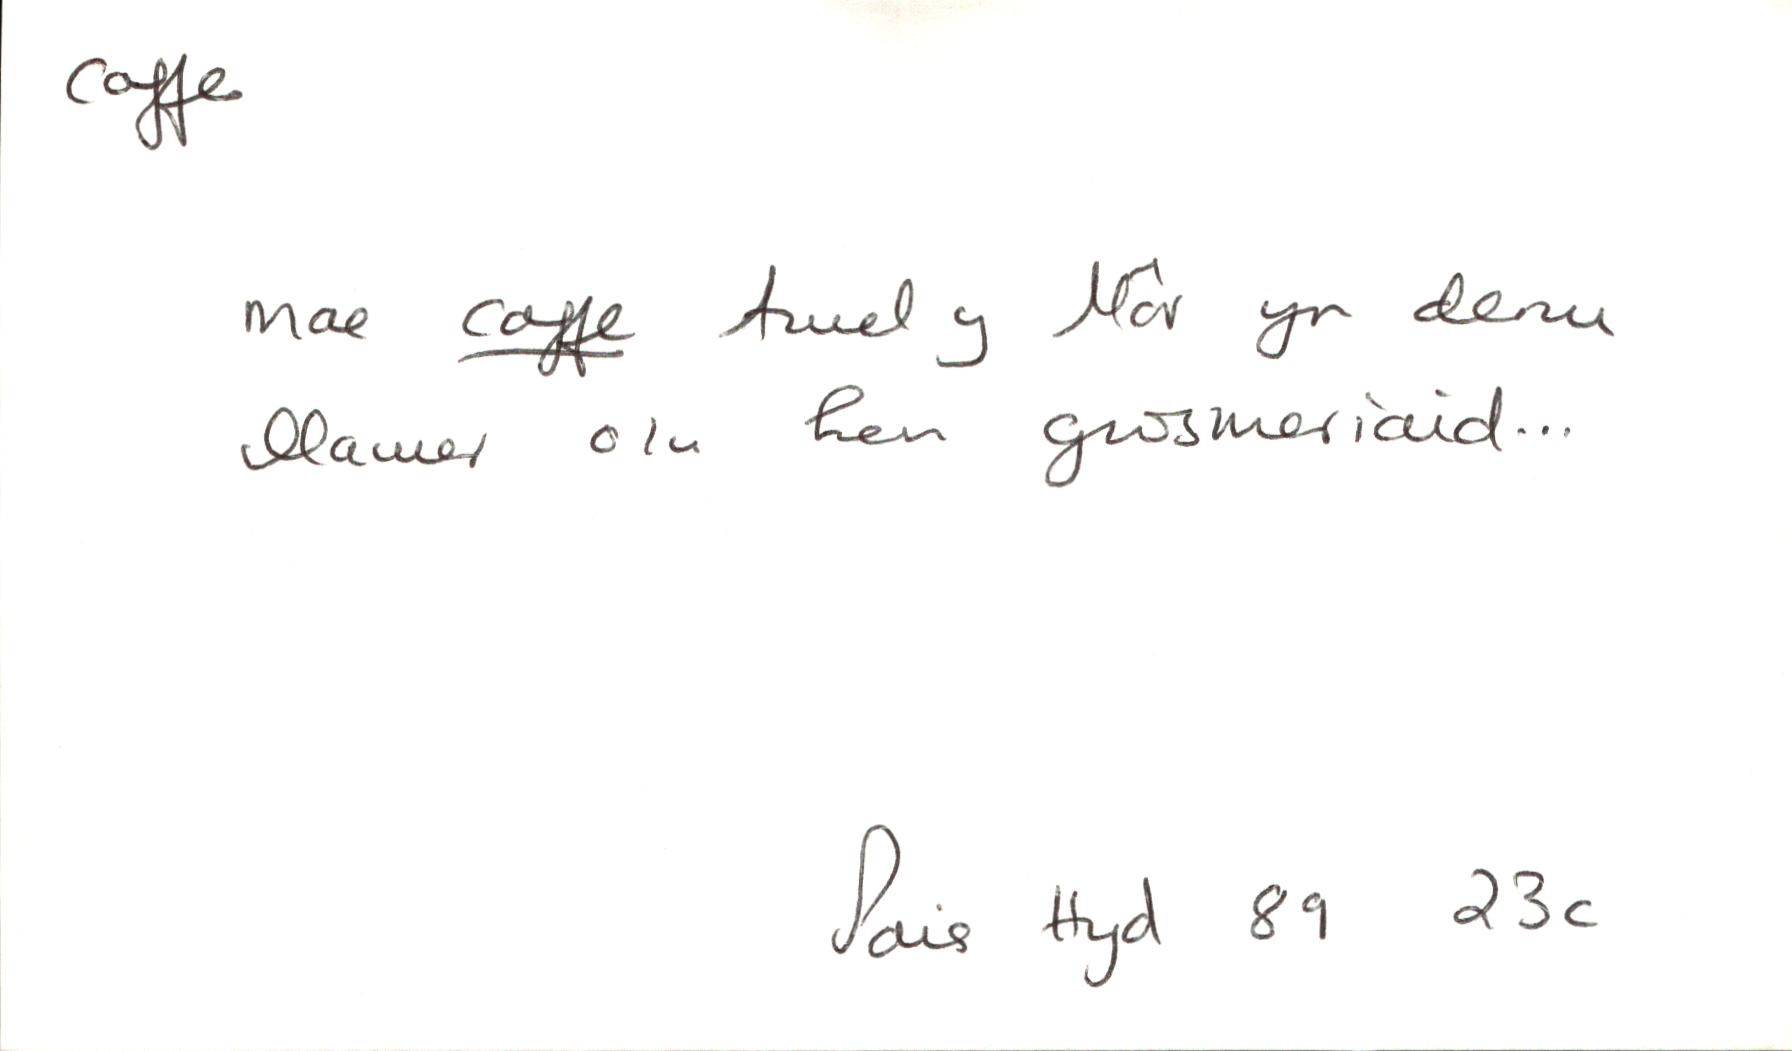 caffe
mae caffe Awel y Môr yn denu
llawer o'u hen gwsmeriaid...
Pais Hyd 89 23c